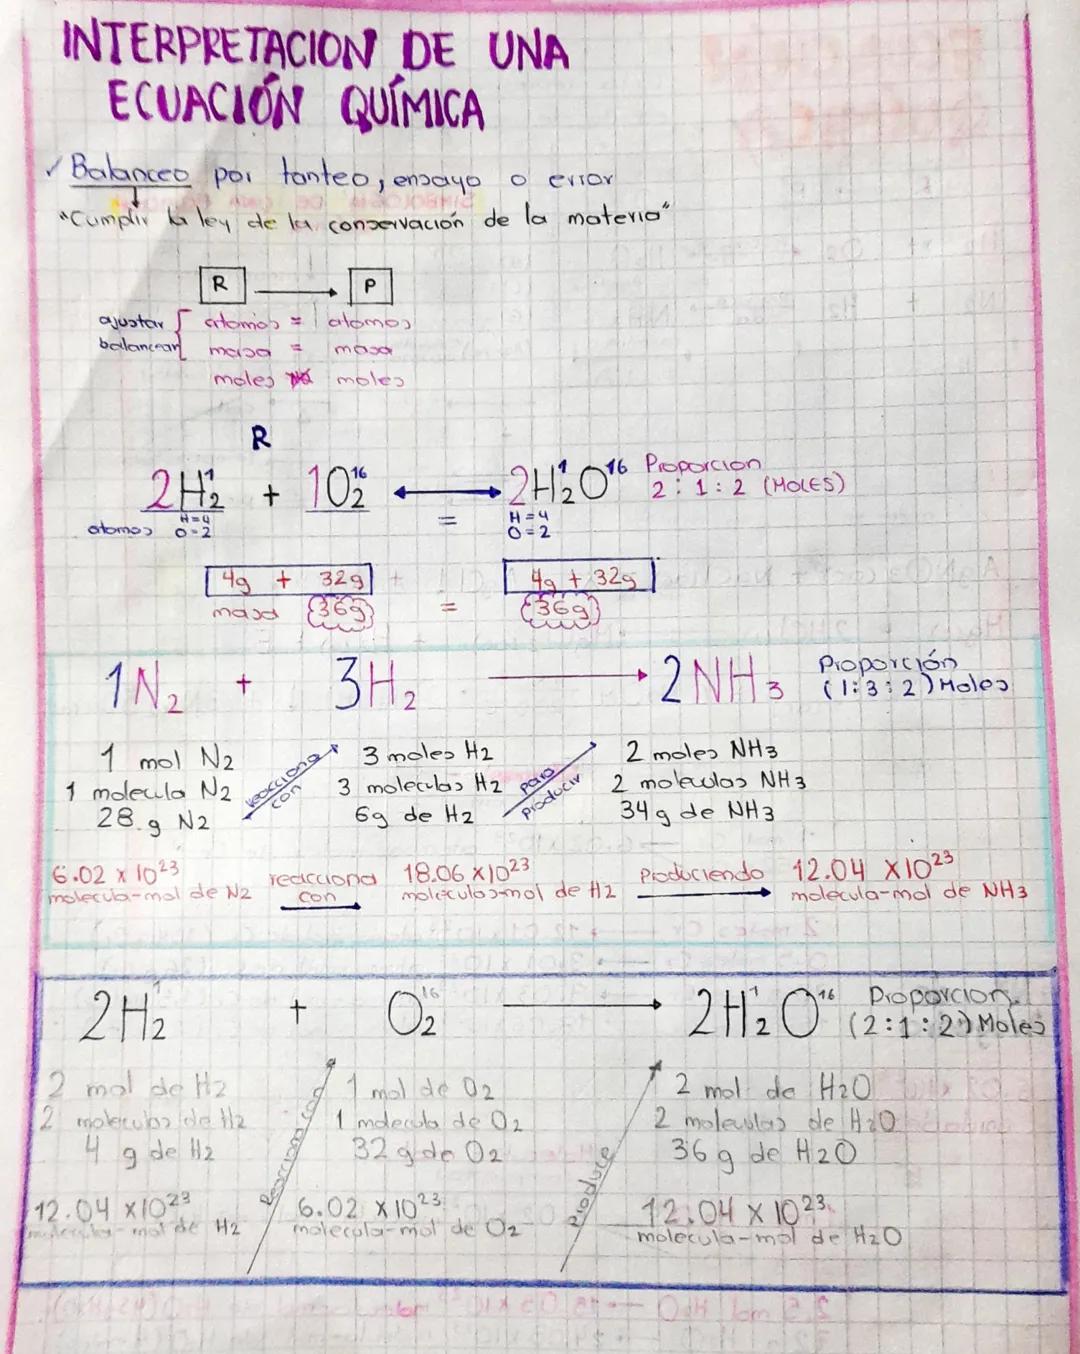 INTERPRETACION DE UNA
ECUACIÓN QUÍMICA
✓ Balanceo por tanteo, ensayo o error
"Cumplir la ley de la conservación de la materia"
R → P
ajustar atomos = atomos
balancear masa = masa
moles NO moles
R
2H₂¹ + 1O₂¹⁶ ↔ 2H₂¹O¹⁶ Proporcion
2:1:2 (MOLES)
atomos H=4 = H=4
O=2 O=2
4g + 32g 4g + 32g
masa 36g = 36g
1N₂ + 3H₂ → 2NH₃ Proporción
(1:3:2) Moles
1 mol N2 reacciona con 3 moles H2 para producir 2 moles NH3
1 molecula N2 3 moleculas H2 2 moleculas NH3
28.g N2 6g de H2 34g de NH3
6.02 x 10²³ reacciona 18.06 x10²³ Produciendo 12.04 X10²³
molecula-mol de N2 con moleculas-mol de H2 molecula-mol de NH3
2H₂¹ + O₂¹⁶ → 2H₂¹O¹⁶ Proporcion
(2:1:2) Moles
2 mol de H2 Reacciona con 1 mol de O2 Produce 2 mol de H2O
2 moleculas de H2 1 molecula de O2 2 moleculas de H2O
4 g de H2 32 g de O2 36 g de H2O
12.04 x10²³ 6.02 x10²³ 12.04 x 10²³
molecula-mol de H2 molecula-mol de O2 molecula-mol de H2O